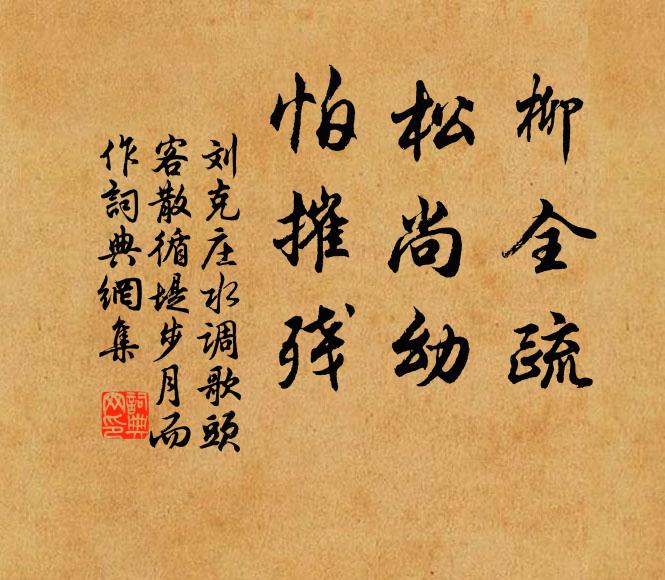 柳全疏
松尚幼
怕摧残
刘克庄水调歌头
客散循堤步月而
作詞典網集
詞典
网印